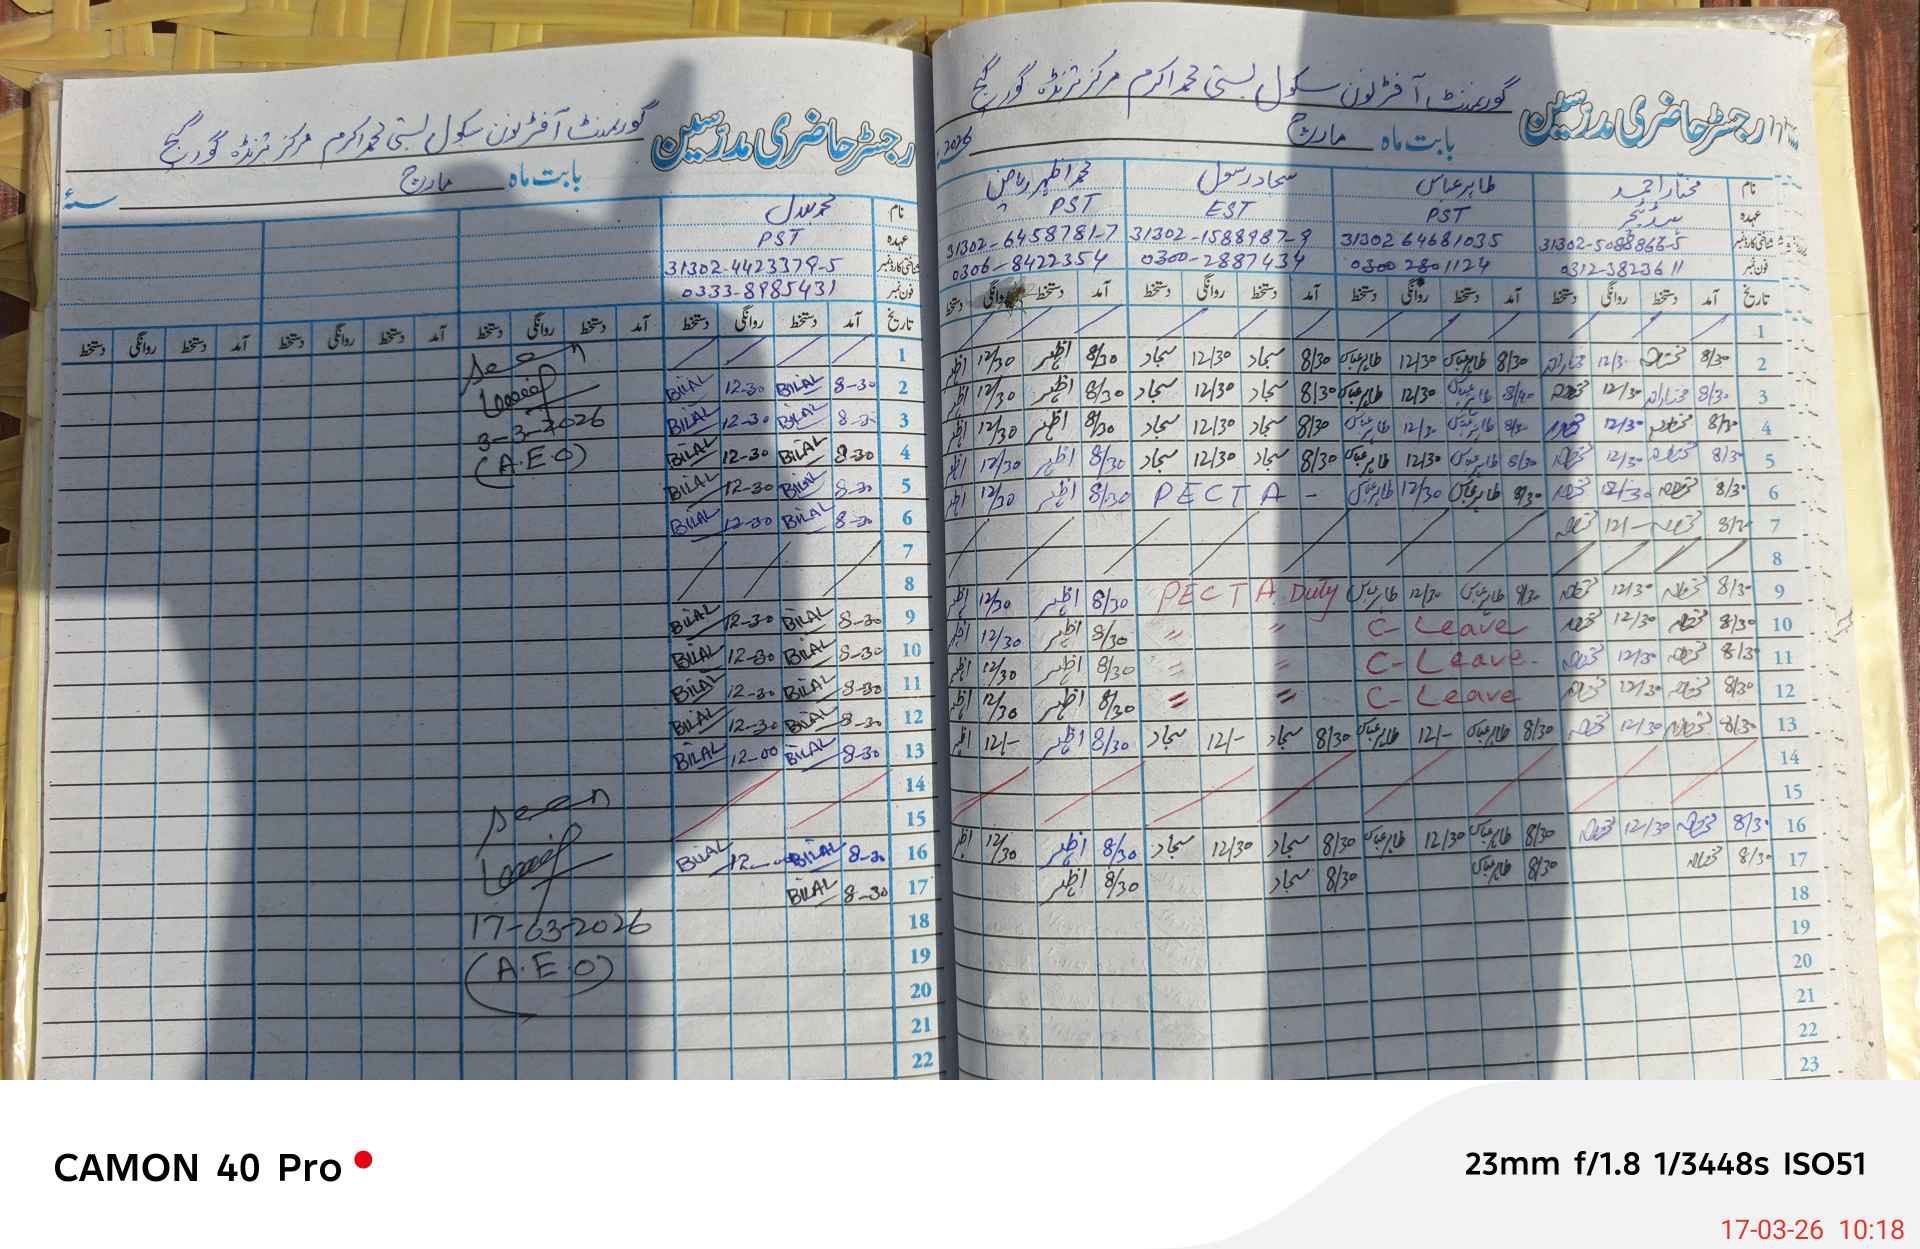 رجسٹر حاضری مدرسین گورنمنٹ آفٹرنون سکول بستی محمد اکرم مرکز ترنڈہ گورگیج
بابت ماہ مارچ 2026
نام مختار احمد طاہر عباس سجاد رسول محمد اظہر ریاض
عہدہ PST EST PST
شناختی کارڈ نمبر 31302-5088866-5 31302 64681035 31302-1588987-9 31302-6458781-7
فون نمبر 0312-3823611 0300 2801124 0300-2887434 0306-8422354
تاریخ آمد دستخط روانگی دستخط آمد دستخط روانگی دستخط آمد دستخط روانگی دستخط آمد دستخط روانگی دستخط
1
2 8/30 12/3 8/30 طاہر عباس 12/30 طاہر عباس 8/30 سجاد 12/30 سجاد 8/30 اظہر 12/30 اظہر
3 8/30 12/30 8/40 طاہر عباس 12/30 طاہر عباس 8/30 سجاد 12/30 سجاد 8/30 اظہر 12/30 اظہر
4 8/30 12/30 8/30 طاہر عباس 12/30 طاہر عباس 8/30 سجاد 12/30 سجاد 8/30 اظہر 12/30 اظہر
5 8/30 12/30 8/30 طاہر عباس 12/30 طاہر عباس 8/30 سجاد 12/30 سجاد 8/30 اظہر 12/30 اظہر
6 8/30 12/30 8/30 طاہر عباس 12/30 طاہر عباس PECTA - 8/30 اظہر 12/30 اظہر
7 8/30 12/-
8
9 8/30 12/30 8/30 طاہر عباس 12/30 طاہر عباس PECTA Duty 8/30 اظہر 12/30 اظہر
10 8/30 12/30 C-Leave " " 8/30 اظہر 12/30 اظہر
11 8/30 12/30 C-Leave " " 8/30 اظہر 12/30 اظہر
12 8/30 12/30 C-Leave " " 8/30 اظہر 12/30 اظہر
13 8/30 12/30 8/30 طاہر عباس 12/- طاہر عباس 8/30 سجاد 12/- سجاد 8/30 اظہر 12/- اظہر
14
15
16 8/30 12/30 8/30 طاہر عباس 12/30 طاہر عباس 8/30 سجاد 12/30 سجاد 8/30 اظہر 12/30 اظہر
17 8/30 8/30 طاہر عباس 8/30 سجاد 8/30 اظہر
18
19
20
21
22
23
رجسٹر حاضری مدرسین گورنمنٹ آفٹرنون سکول بستی محمد اکرم مرکز ترنڈہ گورگیج
بابت ماہ مارچ سنہ
نام محمد بلال
عہدہ PST
شناختی کارڈ نمبر 31302-4423379-5
فون نمبر 0333-8985431
تاریخ آمد دستخط روانگی دستخط آمد دستخط روانگی دستخط آمد دستخط روانگی دستخط آمد دستخط روانگی دستخط
1
2 8-30 BILAL 12-30 BILAL
3 8-30 BILAL 12-30 BILAL
4 8-30 BILAL 12-30 BILAL
5 8-30 BILAL 12-30 BILAL
6 8-30 BILAL 12-30 BILAL
7
8
9 8-30 BILAL 12-30 BILAL
10 8-30 BILAL 12-30 BILAL
11 8-30 BILAL 12-30 BILAL
12 8-30 BILAL 12-30 BILAL
13 8-30 BILAL 12-00 BILAL
14
15
16 8-30 BILAL BILAL
17 8-30 BILAL
18
19
20
21
22
Seen
3-3-2026
(A.E.O)
Seen
17-03-2026
(A.E.O)
CAMON 40 Pro
23mm f/1.8 1/3448s ISO51
17-03-26 10:18